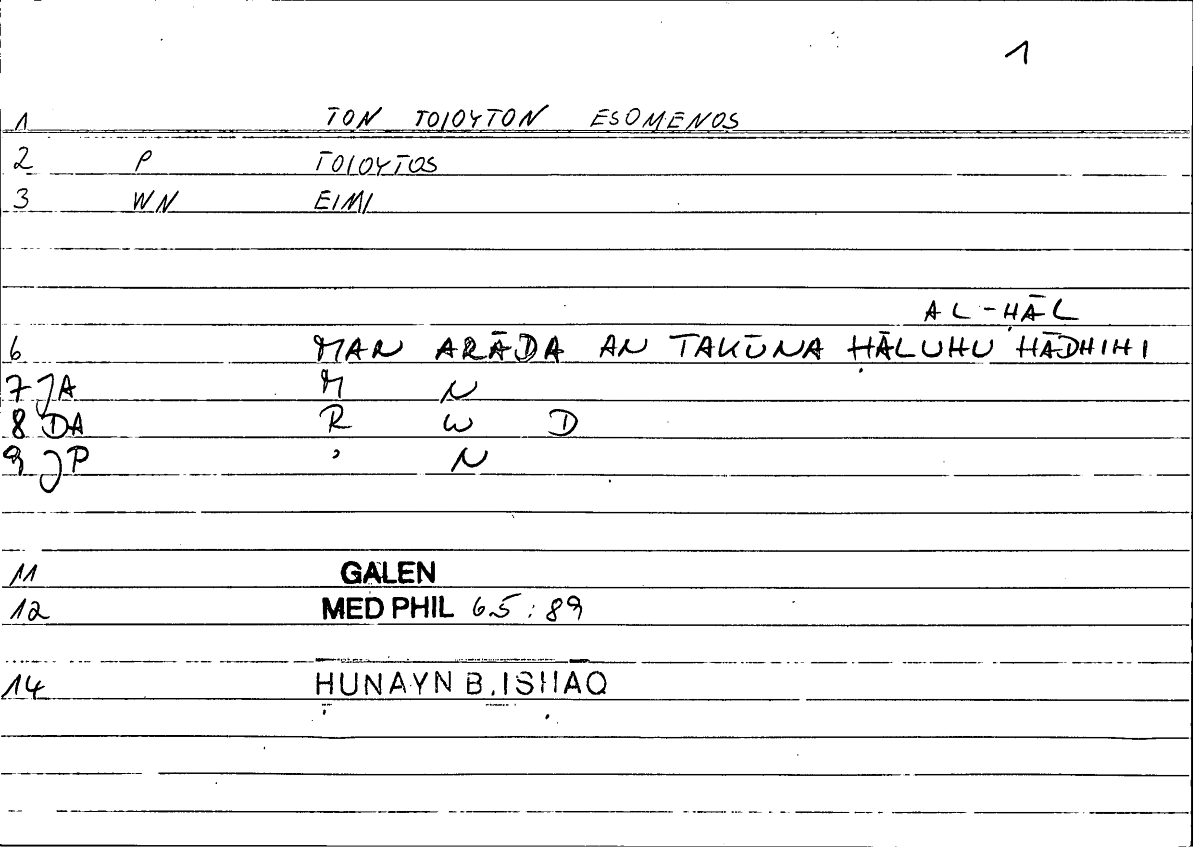 1
1 TON TOIOYTON ESOMENOS
2 P TOIOYTOS
3 WN EIMI
AL-ḤĀL
6 MAN ARĀDA AN TAKŪNA ḤĀLUHU HĀDHIHI
7 JA M N
8 DA R W D
9 JP ʾ N
11 GALEN
12 MED PHIL 6.5 : 89
14 ḤUNAYN B. ISḤĀQ